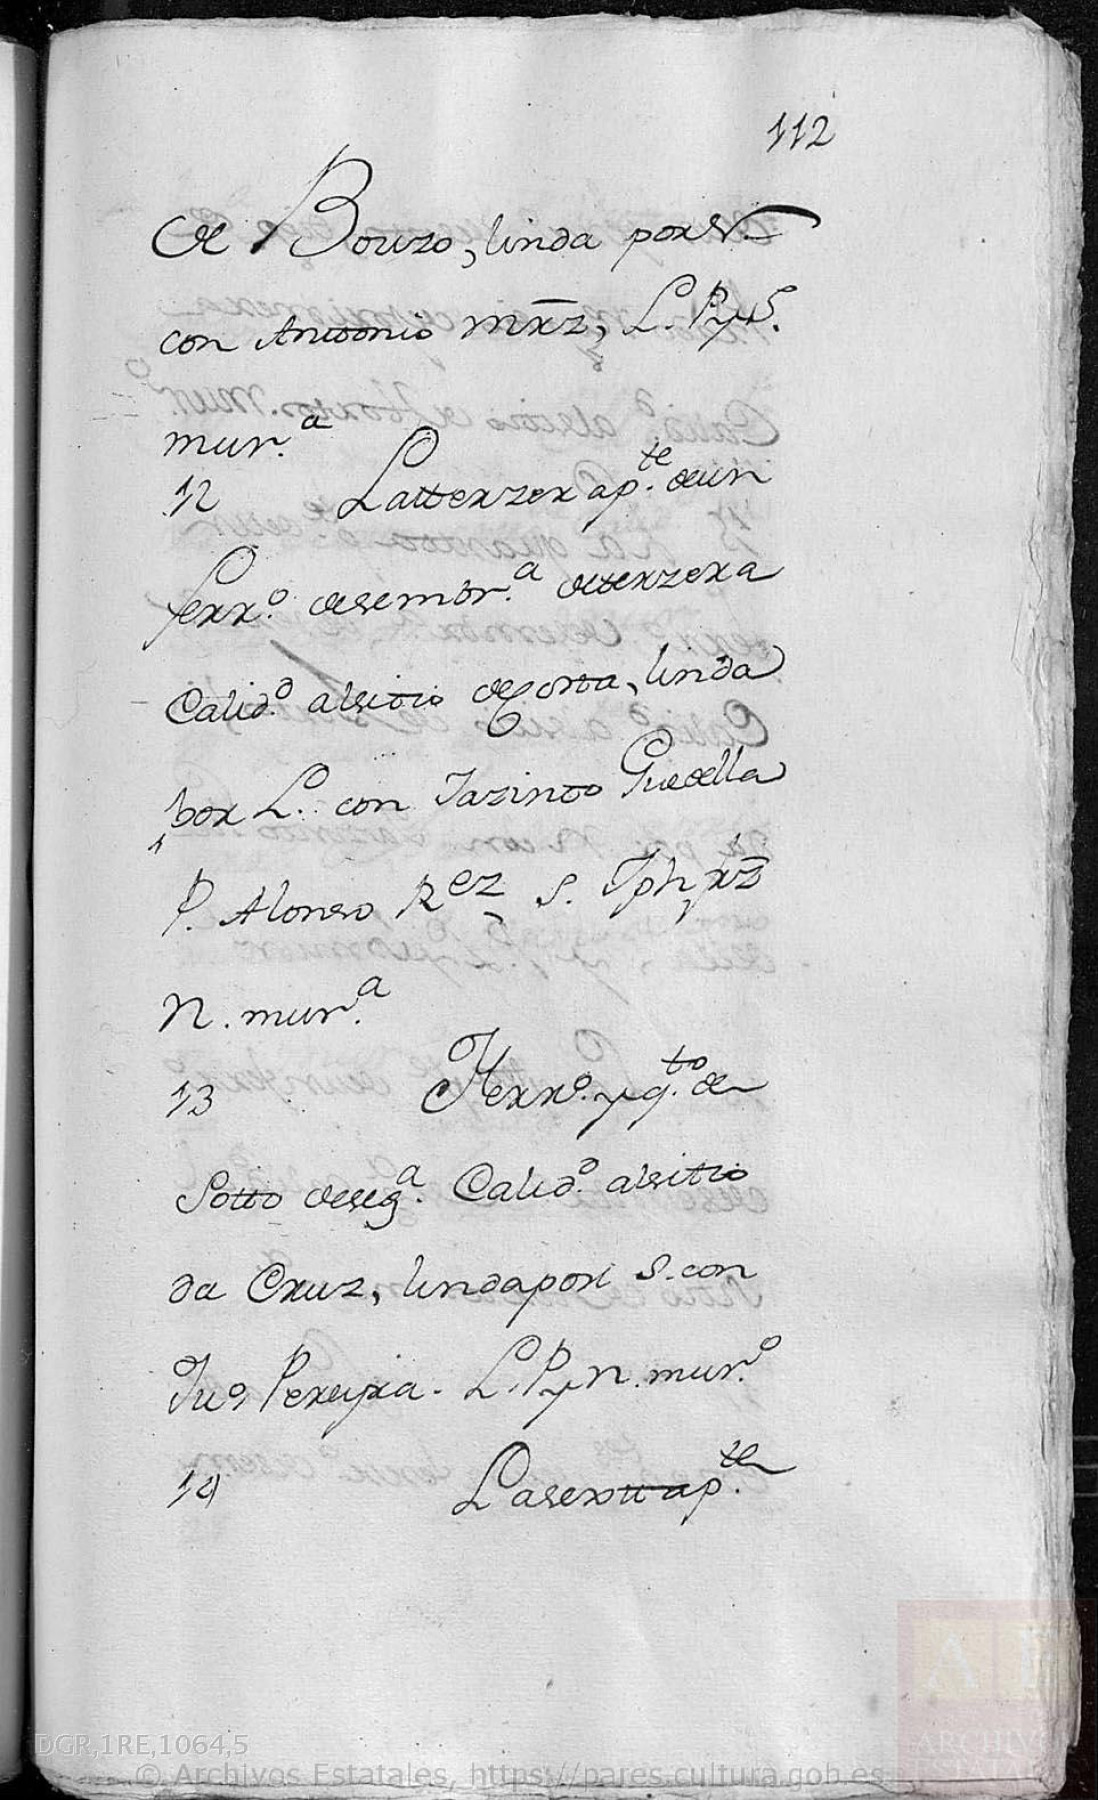 112
de Bouzo, linda por N.
con Antonio Mrz, L. P. y S.
mur.a
12 La terzera p.te de un
ferr.o de sembr.a de terzera
Calid.d al sitio de Corta, linda
por L. con Jazinto Guedella
P. Alonso Rez S. Jph Prz
N. mur.a
13 Ferr.o y q.to de
Sotto de seg.a Calid.d al sitio
da Cruz, linda por S. con
Ju.o Pereyra. L. P. y N. mur.o
14 La sexta p.te
DGR,1RE,1064,5
© Archivos Estatales, https://pares.cultura.gob.es